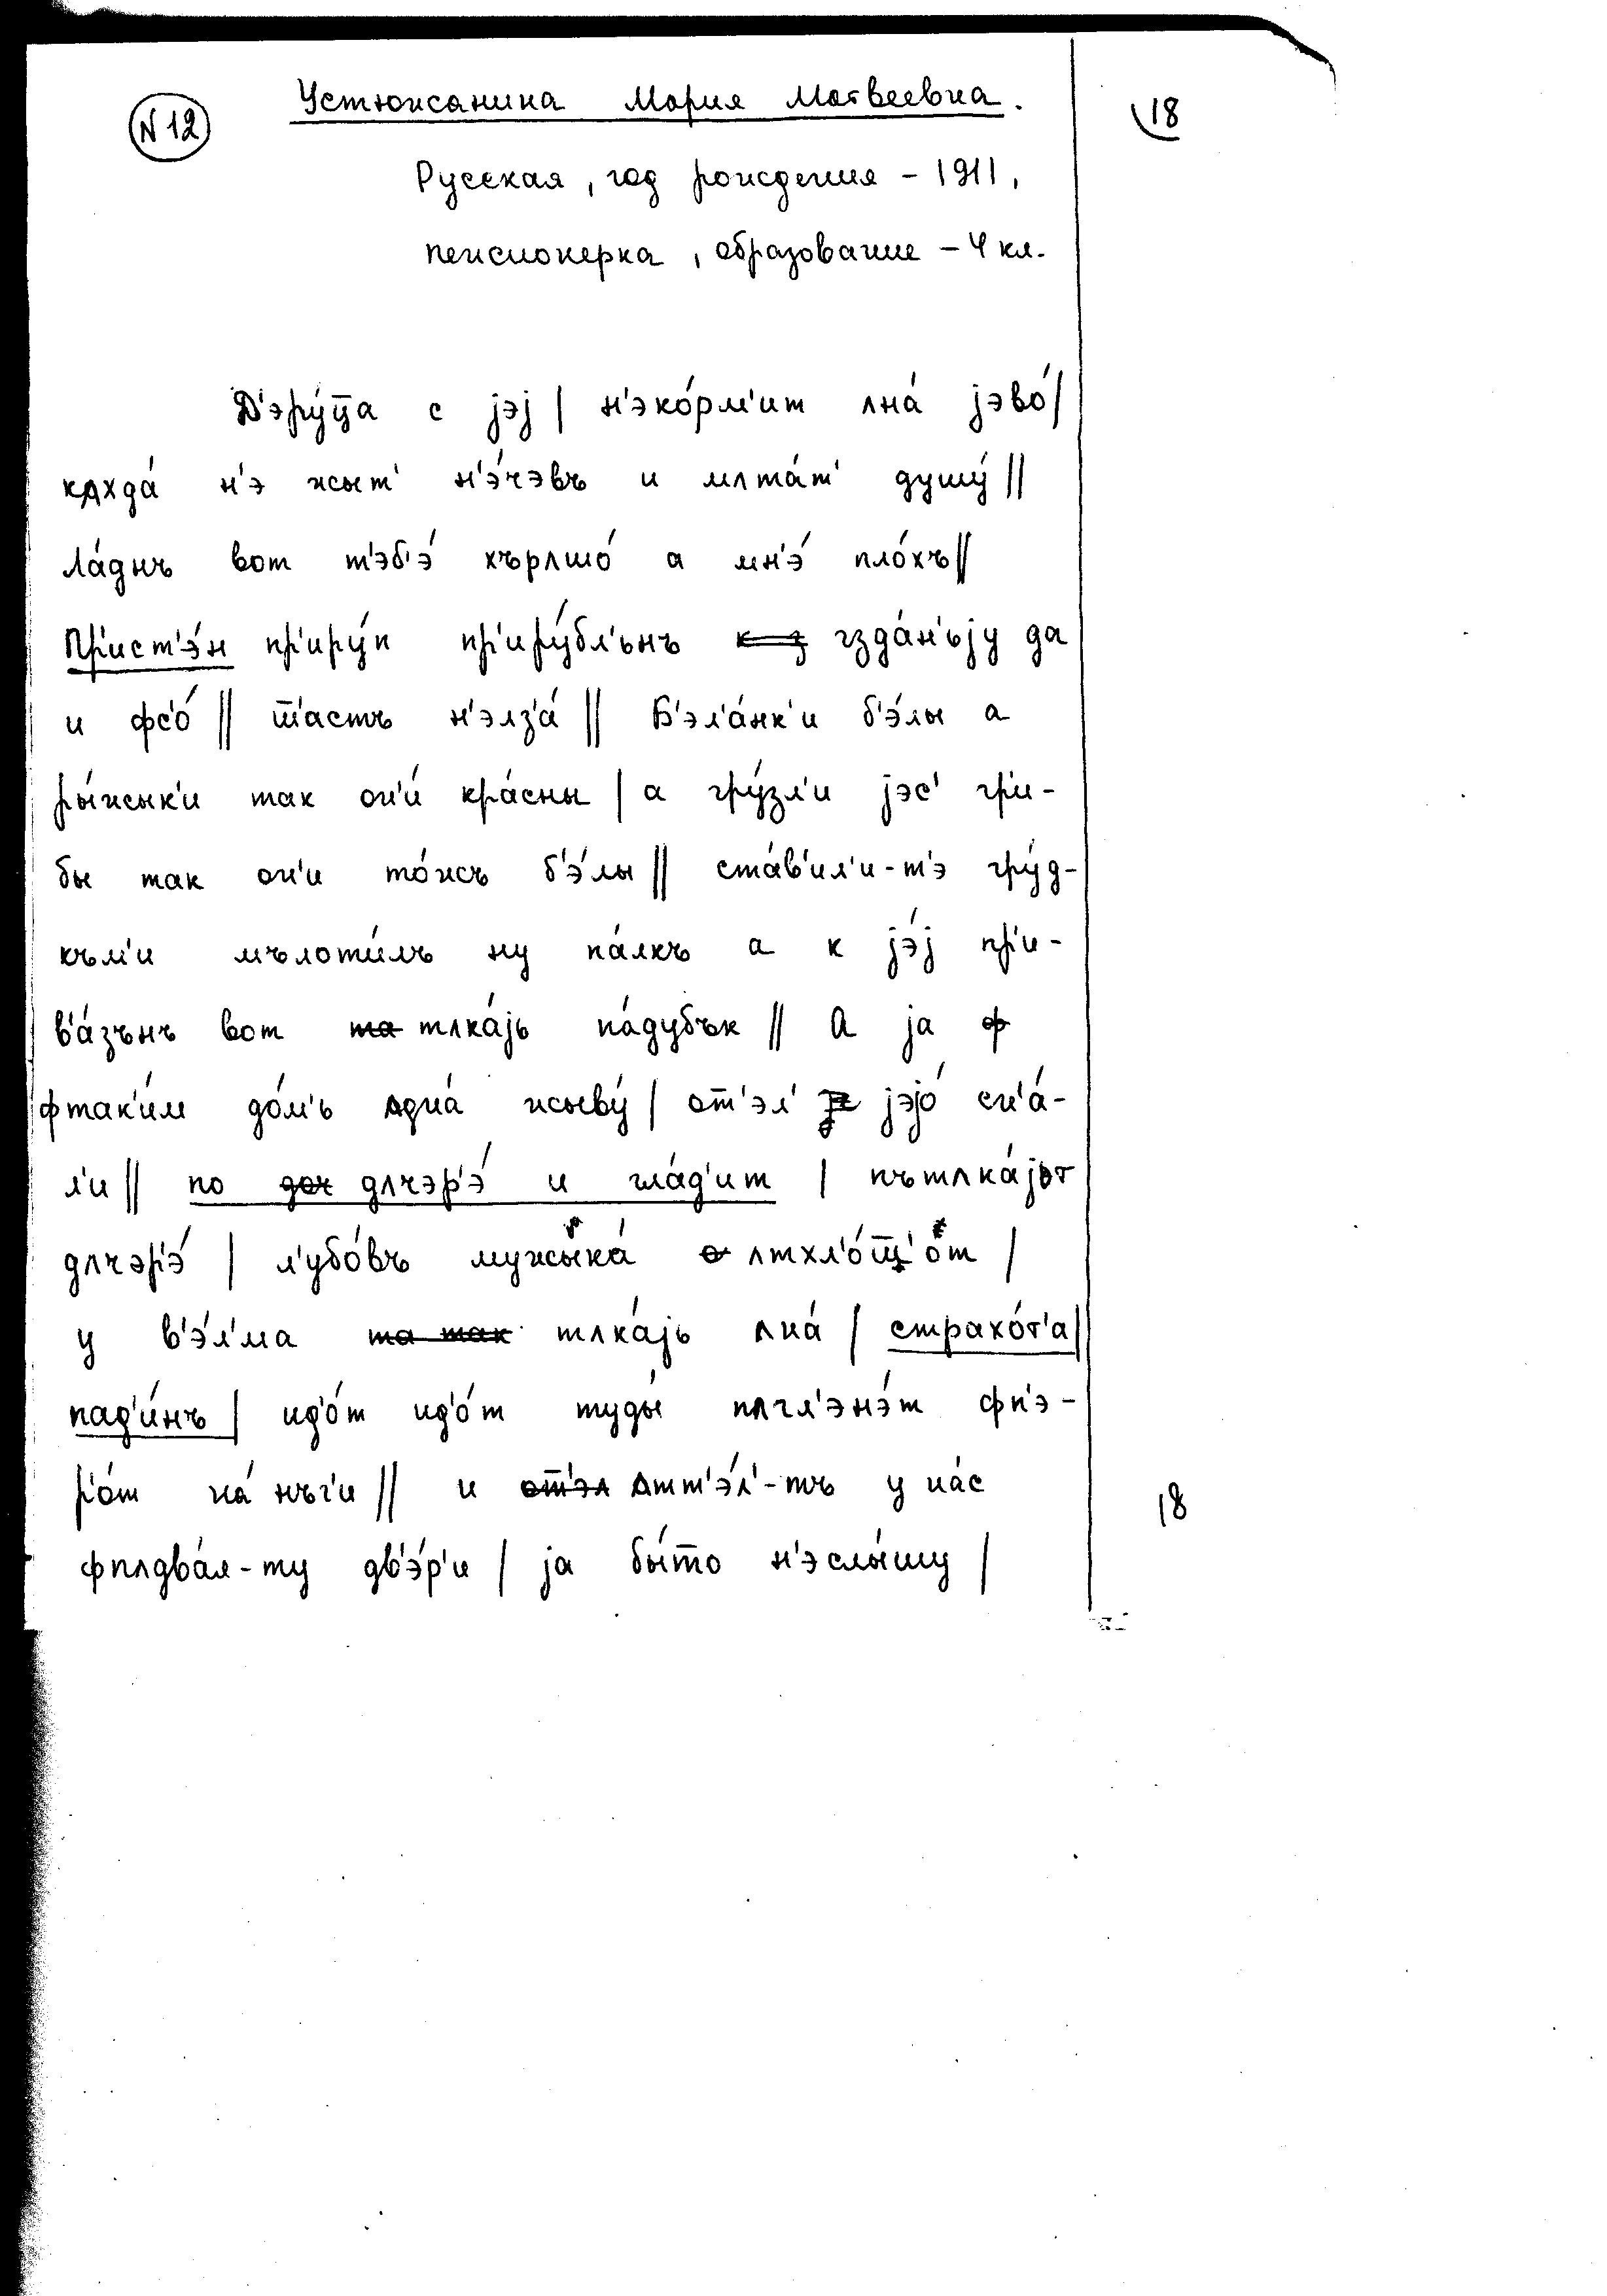 N 12
Устюжанина Мария Матвеевна.
18
Русская, год рождения - 1911,
пенсионерка, образование - 4 кл.
Д'эру́ц̅а с jэj | н'эко́рм'ит ʌна́ jэво́ |
кʌхда́ н'э жыт' н'э́чэвъ и мʌта́т' душу́ ||
Ла́днъ вот т'эб'э́ хърʌшо́ а мн'э́ пло́хъ ||
Пр'ист'э́н пр'иру́п пр'иру́бл'ьнъ гзда́н'ьjу да
и фс'о́ || т̅'астъ н'элз'а́ || Б'эл'а́нк'и б'э́лы а
ры́жык'и так он'и́ кра́сны | а гру́зл'и jэс' гр'и-
бы так он'и то́жъ б'э́лы || ста́в'ил'и-т'э гру́д-
към'и мълоти́лъ ну па́лкъ а к jэ́j пр'и-
в'а́зънъ вот тʌка́jь па́дубък || А jа
фтак'и́м до́м'ь ʌдна́ жыву́ | от'эл' jэjо́ сн'а́-
л'и || по дʌчэр'э́ и гла́д'ит | пътʌка́jьт
дʌчэр'э́ | л'убо́въ мужыка́ ʌтхл'о́щ̅'от |
у в'э́л'ма тʌка́jь ʌна́ | страхо́т'а |
пад'и́нъ | ид'о́т ид'о́т туды́ пʌгл'энэ́т фп'э-
р'о́т на́ нъг'и || и ʌтт'э́л'-тъ у на́с
фпʌдва́л-ту дв'э́р'и | jа бы́т̅о н'эслы́шу |
18